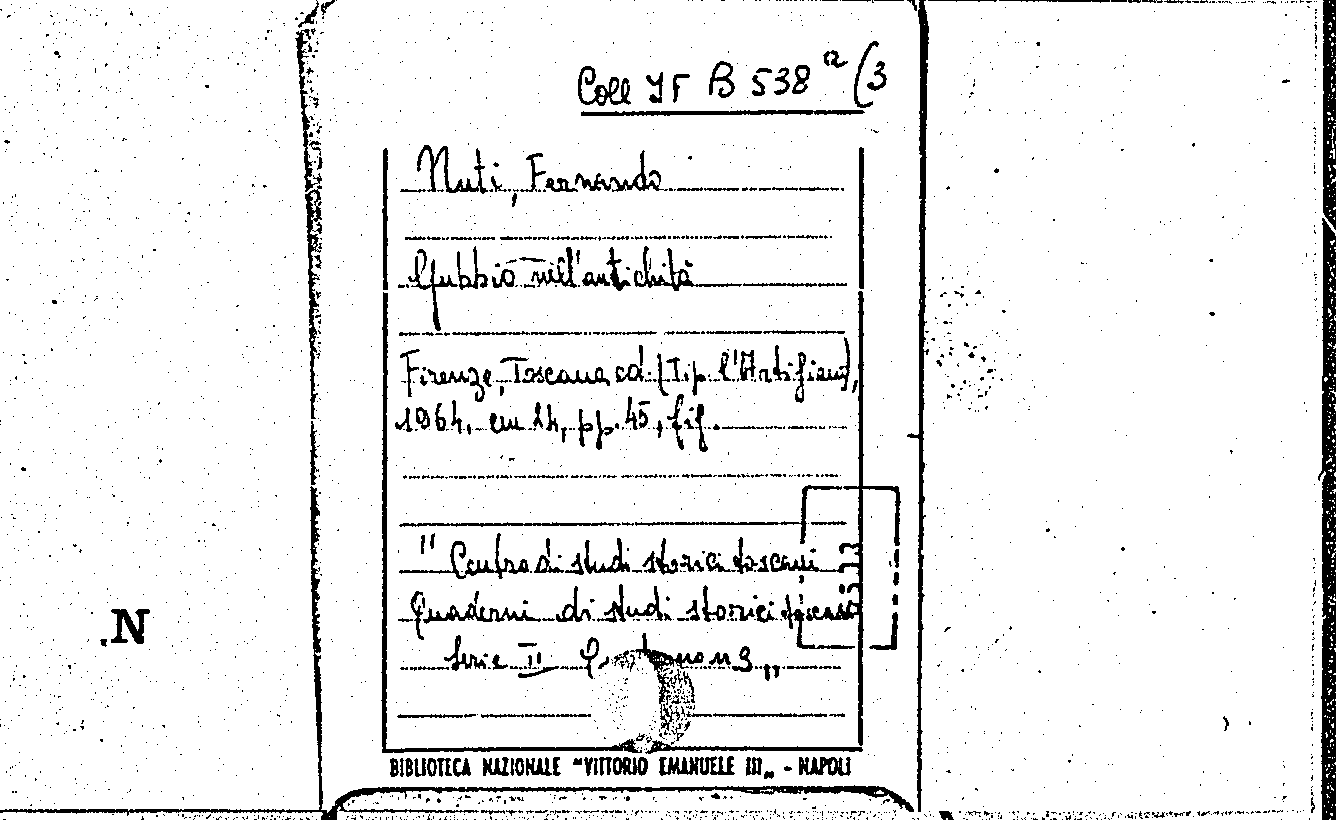 Coll IF B 538 12 (3
Nuti, Fernando
Gubbio nell'antichità
Firenze, Toscana ed. (Tip. l'Artigiana),
1964, cm 24, pp. 45, fig.
" Centro di studi storici toscani
Quaderni di studi storici toscani
Serie II n 3 „
.N
BIBLIOTECA NAZIONALE "VITTORIO EMANUELE III„ - NAPOLI